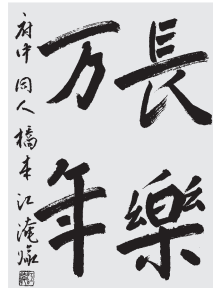 長樂
万年
府中 同人 橋本江滝敬